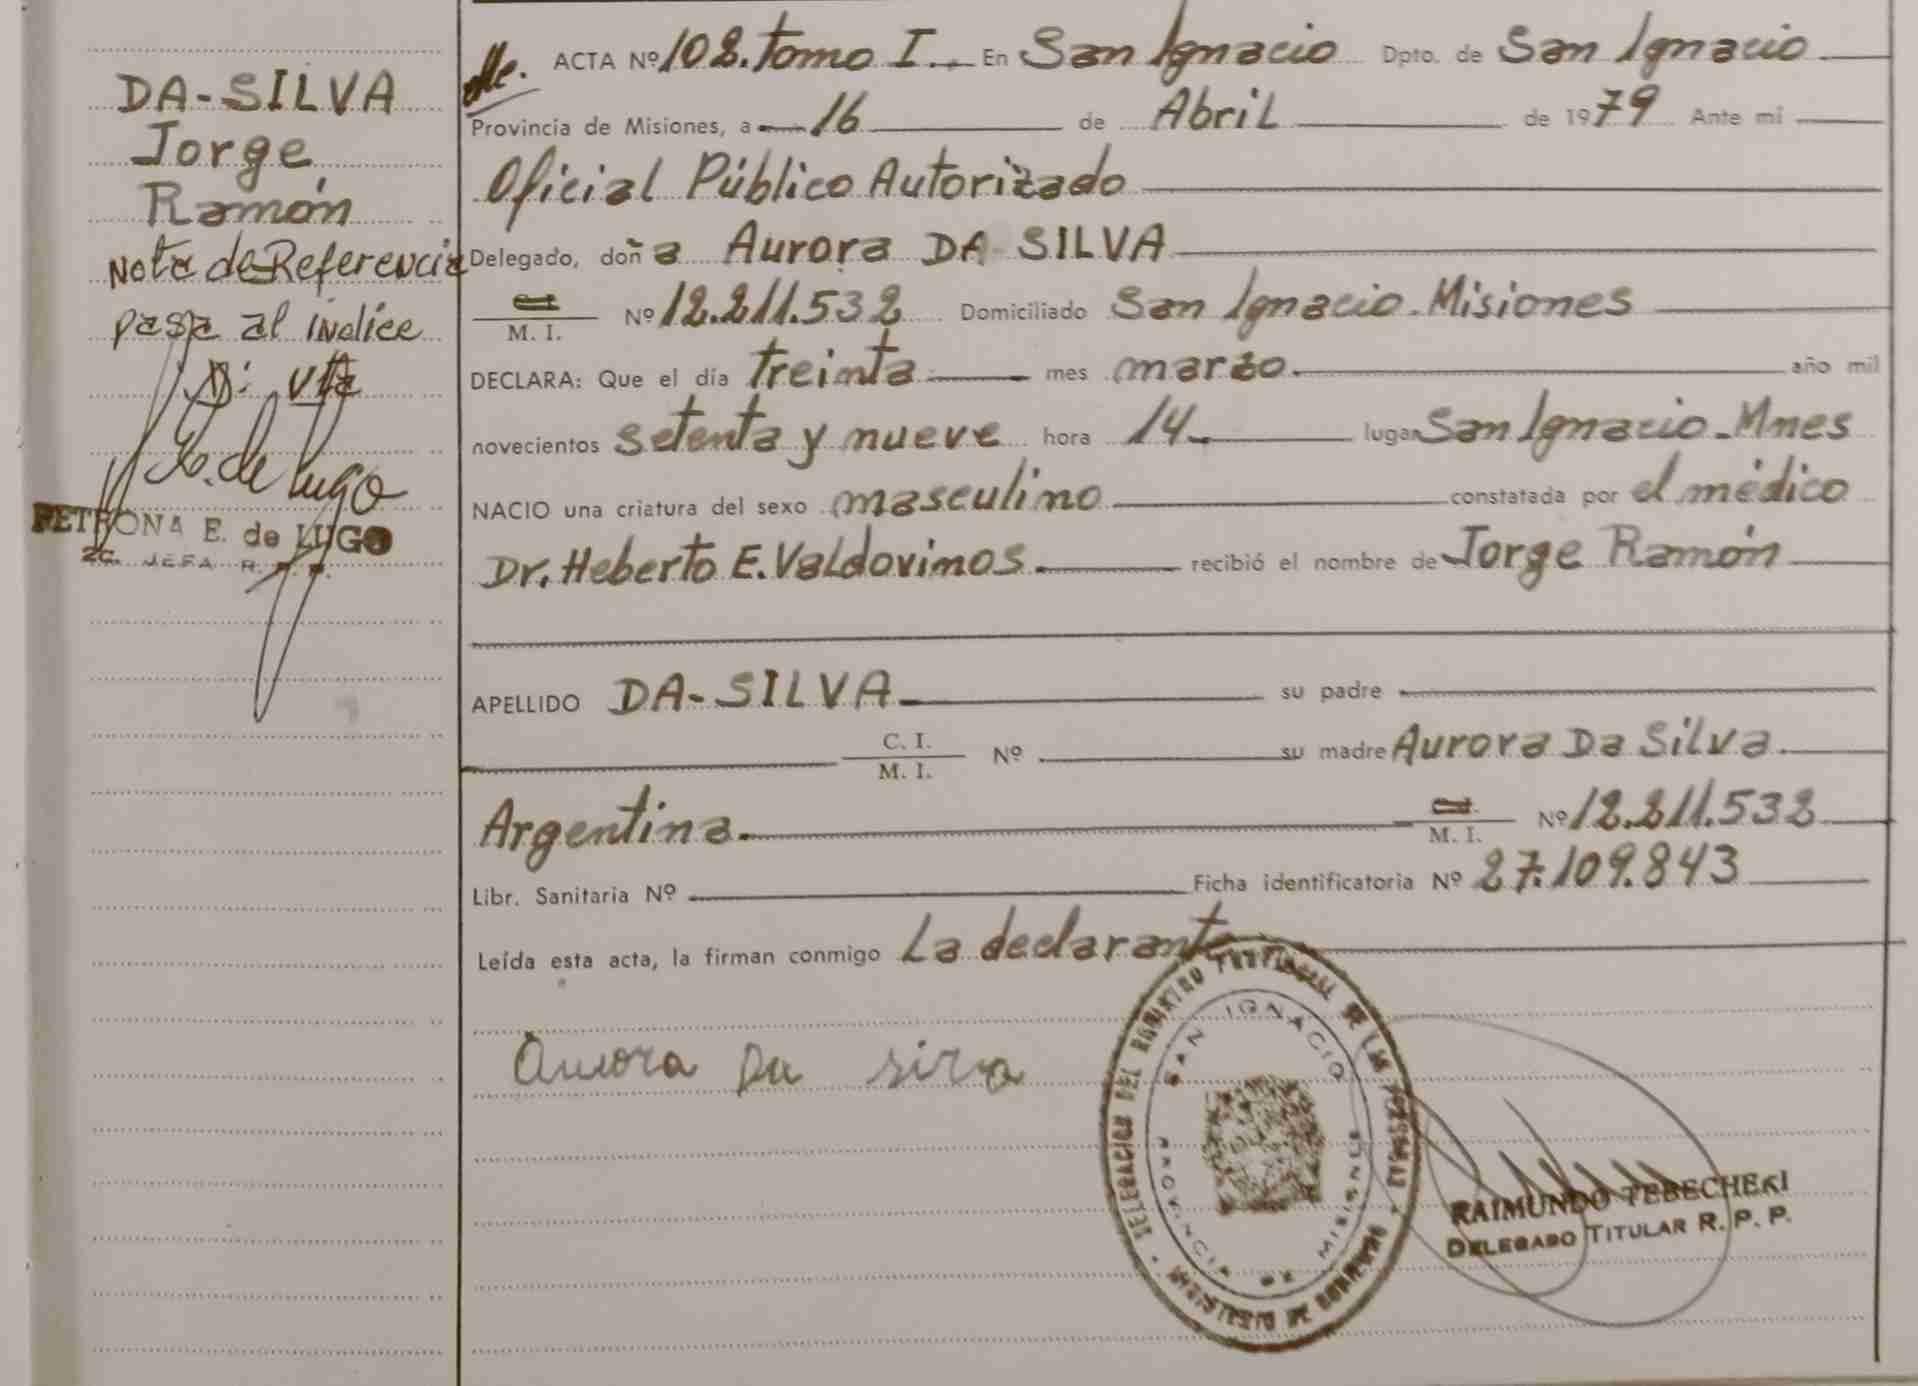 DA-SILVA
Jorge
Ramón
Nota de Referencia
pasa al indice
Vta
E. de Lugo
PETRONA E. de LUGO
JEFA R.
ACTA Nº 102. Tomo I. En San Ignacio Dpto. de San Ignacio
Provincia de Misiones, a 16 de Abril de 1979 Ante mi
Oficial Público Autorizado
Delegado, doña Aurora DA SILVA
M. I. Nº 12.211.532 Domiciliado San Ignacio-Misiones
DECLARA: Que el día treinta mes marzo. año mil
novecientos setenta y nueve hora 14 lugar San Ignacio-Mnes
NACIO una criatura del sexo masculino constatada por el médico
Dr. Heberto E. Valdovinos recibió el nombre de Jorge Ramón
APELLIDO DA-SILVA su padre
C. I.
M. I. Nº su madre Aurora Da Silva
Argentina. M. I. Nº 12.211.532
Libr. Sanitaria Nº Ficha identificatoria Nº 27.109.843
Leída esta acta, la firman conmigo La declarante
Aurora Da Silva
DELEGACION DEL REGISTRO PROVINCIAL DE LAS PERSONAS
SAN IGNACIO
PROVINCIA DE MISIONES
MINISTERIO DE GOBIERNO
RAIMUNDO TEBECHEKI
DELEGADO TITULAR R. P. P.